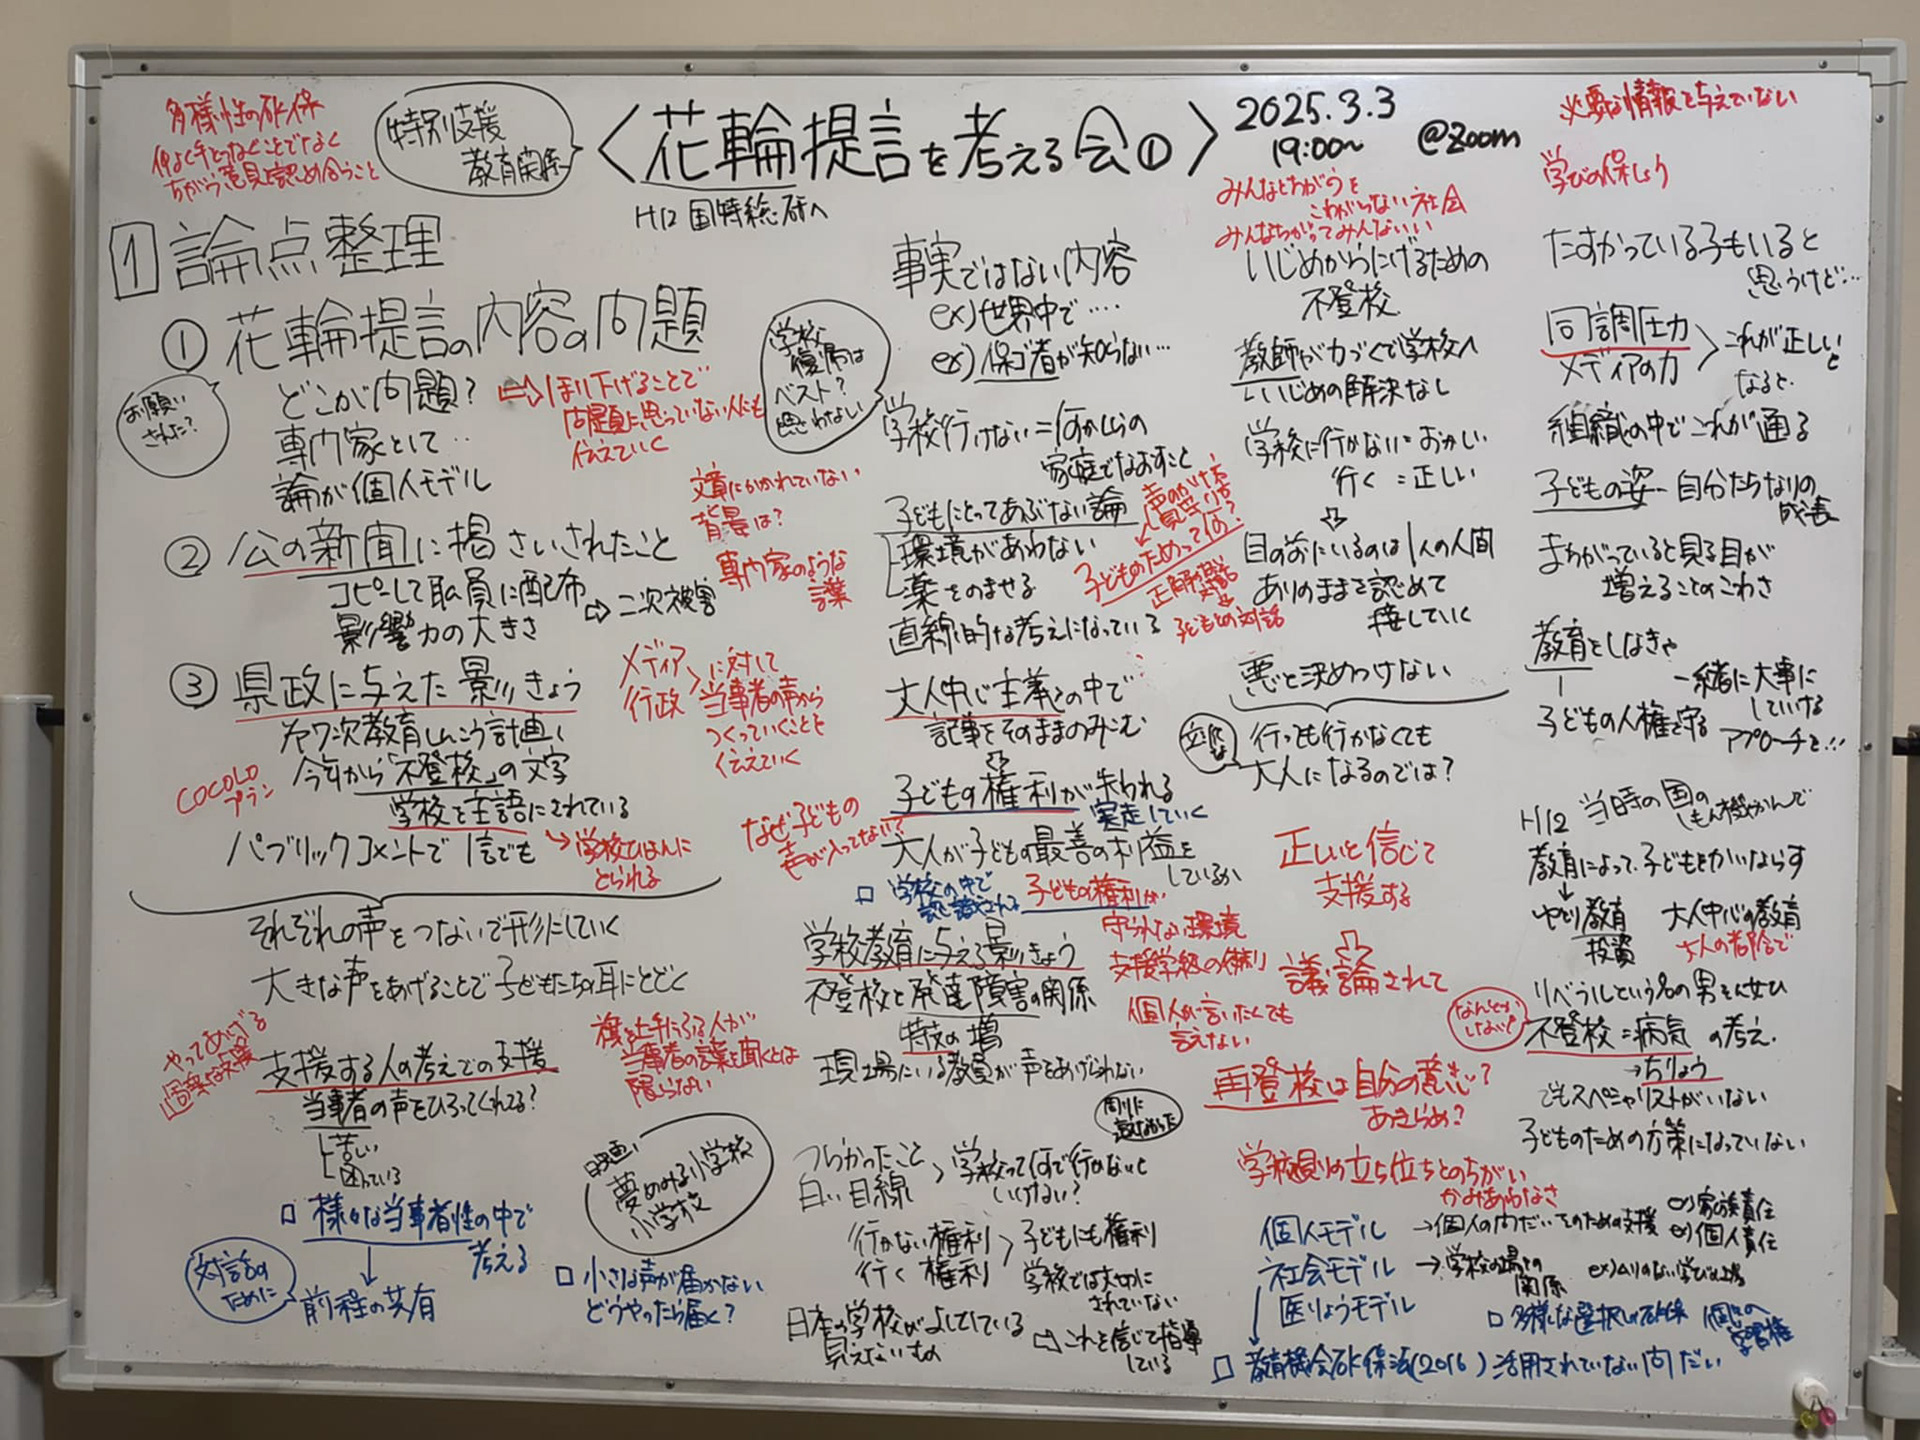 多様性の確保
仲よく手をつなぐことでなく
ちがう意見を認め合うこと
特別支援
教育関係
〈花輪提言を考える会①〉
2025.3.3
19:00~
@Zoom
H12 国特総研へ
必要な情報を与えていない
学びの保しょう
1 論点整理
① 花輪提言の内容の問題
お願い
された?
どこが問題?
⇨ほり下げることで
問題に思っていない人にも
伝えていく
専門家として‥
論が個人モデル
② 公の新聞に掲さいされたこと
コピーして職員に配布
影響力の大きさ
⇨二次被害
文章にかかれていない
背景は?
専門家のような
言葉
③ 県政に与えた影きょう
第7次教育しんこう計画
今年から「不登校」の文字
学校を主語にされている
COCOLO
プラン
パブリックコメントで1信でも
→学校ひはんに
とられる
メディア
行政
に対して
当事者の声から
つくっていくことを
伝えていく
それぞれの声をつないで形にしていく
大きな声をあげることで子どもたちの耳にとどく
やってあげる
支援する人の考えでの支援
当事者の声をひろってくれてる?
苦しい
困っている
旗を上手にふる人が
当事者の言葉を聞くとは
限らない
□ 様々な当事者性の中で
考える
対話の
ために
前程の共有
映画
夢みる小学校
小学校
□ 小さな声が届かない
どうやったら届く?
事実ではない内容
ex) 世界中で‥‥
ex) 保ゴ者が知らない…
学校
復帰は
ベスト?
思わない
学校行けない=何かしらの
家庭でなおすこと
子どもにとってあぶない論
環境があわない
薬をのませる
直線的な考えになっている
声のかけ方
見守り方
子どものためって何?
子どもとの対話
大人中心主義の中で
記事をそのままのみこむ
子どもの権利が失われる
大人が子どもの最善の利益を
しているか
なぜ子どもの
声が入ってない?
□ 学校の中で
認識される
子どもの権利が
守られない環境
支援学級の体制
個人が言いたくても
言えない
学校教育に与える影きょう
不登校と発達障害の関係
特支の増
現場にいる教員が声をあげられない
つらかったこと
白い目線
学校って何で行かないと
いけない?
行かない権利
行く権利
子どもにも権利
学校では大切に
されていない
日本の学校がよしとしている
見えないもの
⇨これを信じて指導
している
みんなとちがうを
こわがらない社会
みんなちがってみんないい
いじめからにげるための
不登校
教師が力づくで学校へ
いじめの解決なし
学校に行かない=おかしい
行く=正しい
目の前にいるのは1人の人間
ありのままを認めて
接していく
悪と決めつけない
行っても行かなくても
大人になるのでは?
正しいと信じて
支援する
議論されて
再登校は自分の意志?
あきらめ?
学校側の立ち位置とのちがい
かみあわなさ
個人モデル
→個人の問だい、そのための支援
ex) 家族責任
ex) 個人責任
社会モデル
→学校の場との
関係
医りょうモデル
□ 多様な選択しの確保
個々の
学習権
□ 教育機会確保法(2016)活用されていない問だい
たすかっている子もいると
思うけど…
同調圧力
メディアの力
これが正しい
となると
組織の中でこれが通る
子どもの姿-自分たちなりの
成長
まちがっていると見る目が
増えることのこわさ
教育をしなきゃ
子どもの人権を守る
一緒に大事に
していける
アプローチを…
H12 当時の国の
しもん機かんで
教育によって子どもをかいならす
ゆとり教育
投資
大人中心の教育
大人の都合で
リベラルという名の男そん女ひ
なんとか
しなが
不登校=病気の考え.
→ちりょう
でもスペシャリストがいない
子どものための方策になっていない